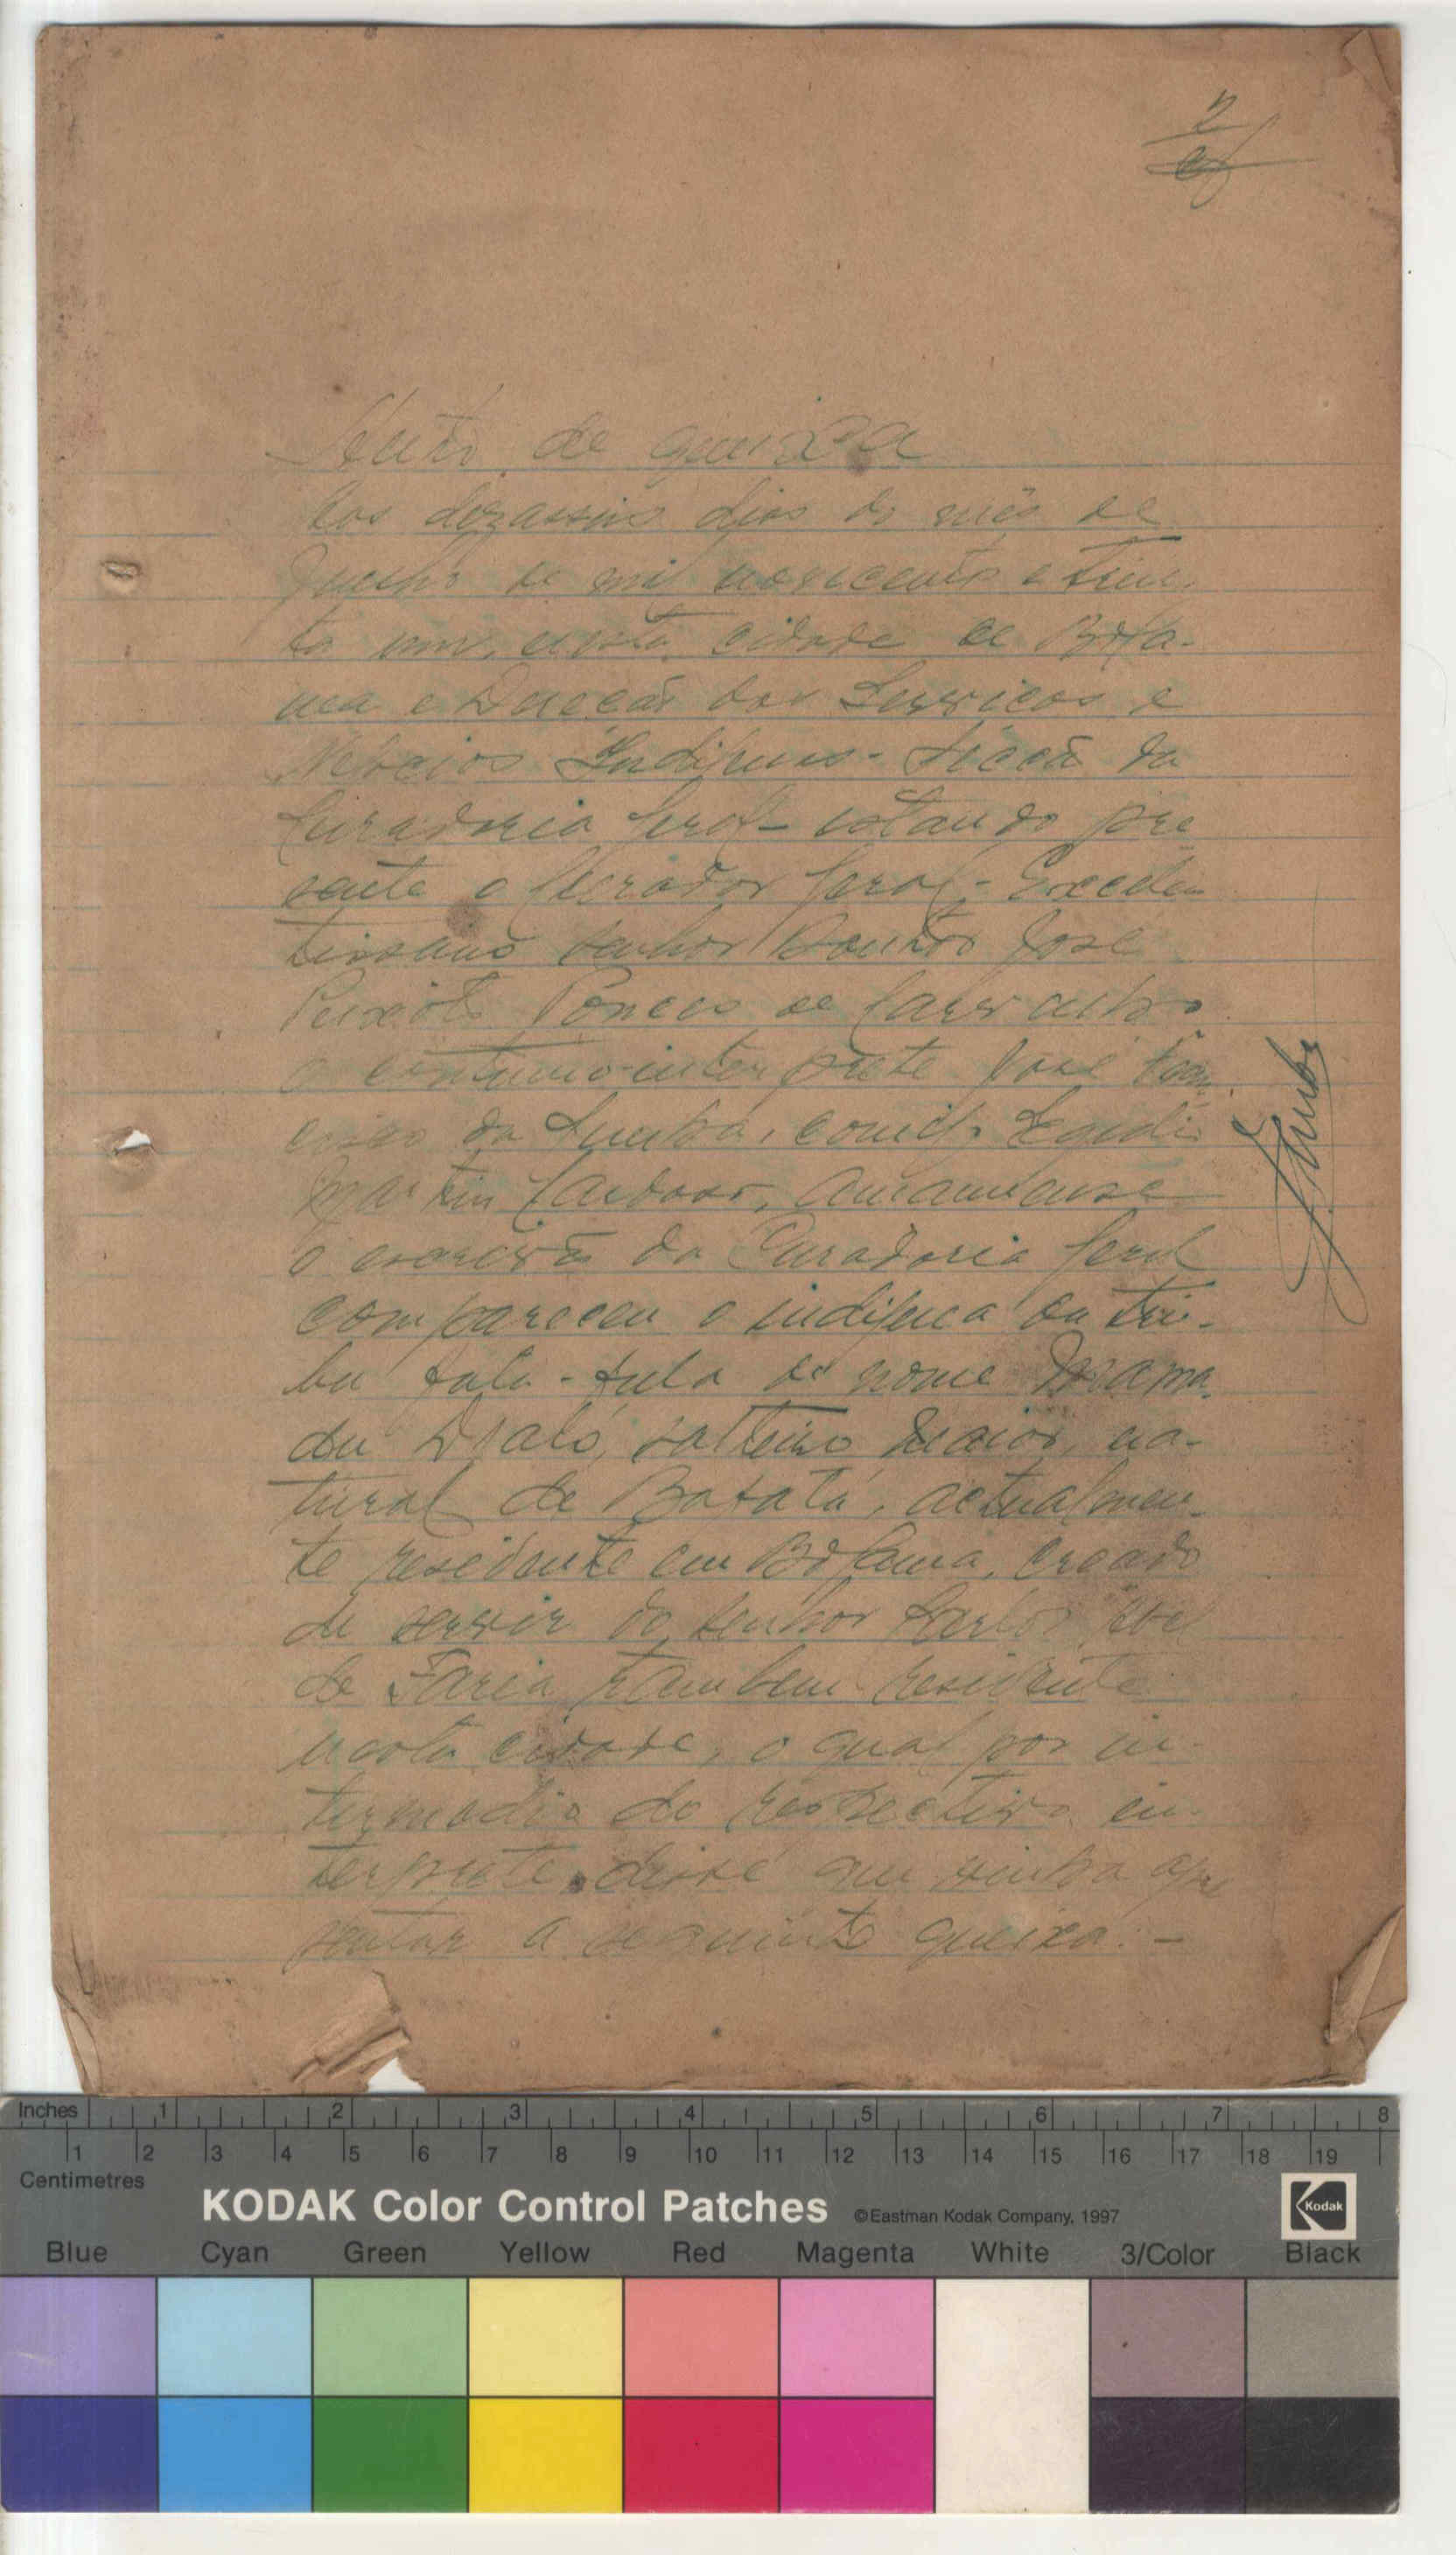 2
Auto de queixa
Aos dezasseis dias do mês de
de mil novecentos e trin-
ta um, nesta cidade de Bola-
ma e Direcção dos Serviços e
Negocios Indigenas - Secção da
Curadoria Geral - estando pre
sente o Curador Geral - Excelen
tissimo senhor Doutor José
Peixoto Ponces de Carvalho
o continuo-interprete José
da Cunha, comigo Egidio
Martins Cardoso, amanuense
o escrivão da Curadoria Geral
compareceu o indigena da tri-
bu fula-fula de nome Mama
du Djaló, solteiro maior, na-
tural de Bafatá, actualmen-
te residente em Bolama, creado
de servir do senhor Carlos Abel
de Faria tambem residente
nesta cidade, o qual por in-
termedio do respectivo in-
terprete, disse que vinha apre
sentar a seguinte queixa: -
Inches 1 2 3 4 5 6 7 8
1 2 3 4 5 6 7 8 9 10 11 12 13 14 15 16 17 18 19
Centimetres
KODAK Color Control Patches ©Eastman Kodak Company, 1997 Kodak
Blue Cyan Green Yellow Red Magenta White 3/Color Black